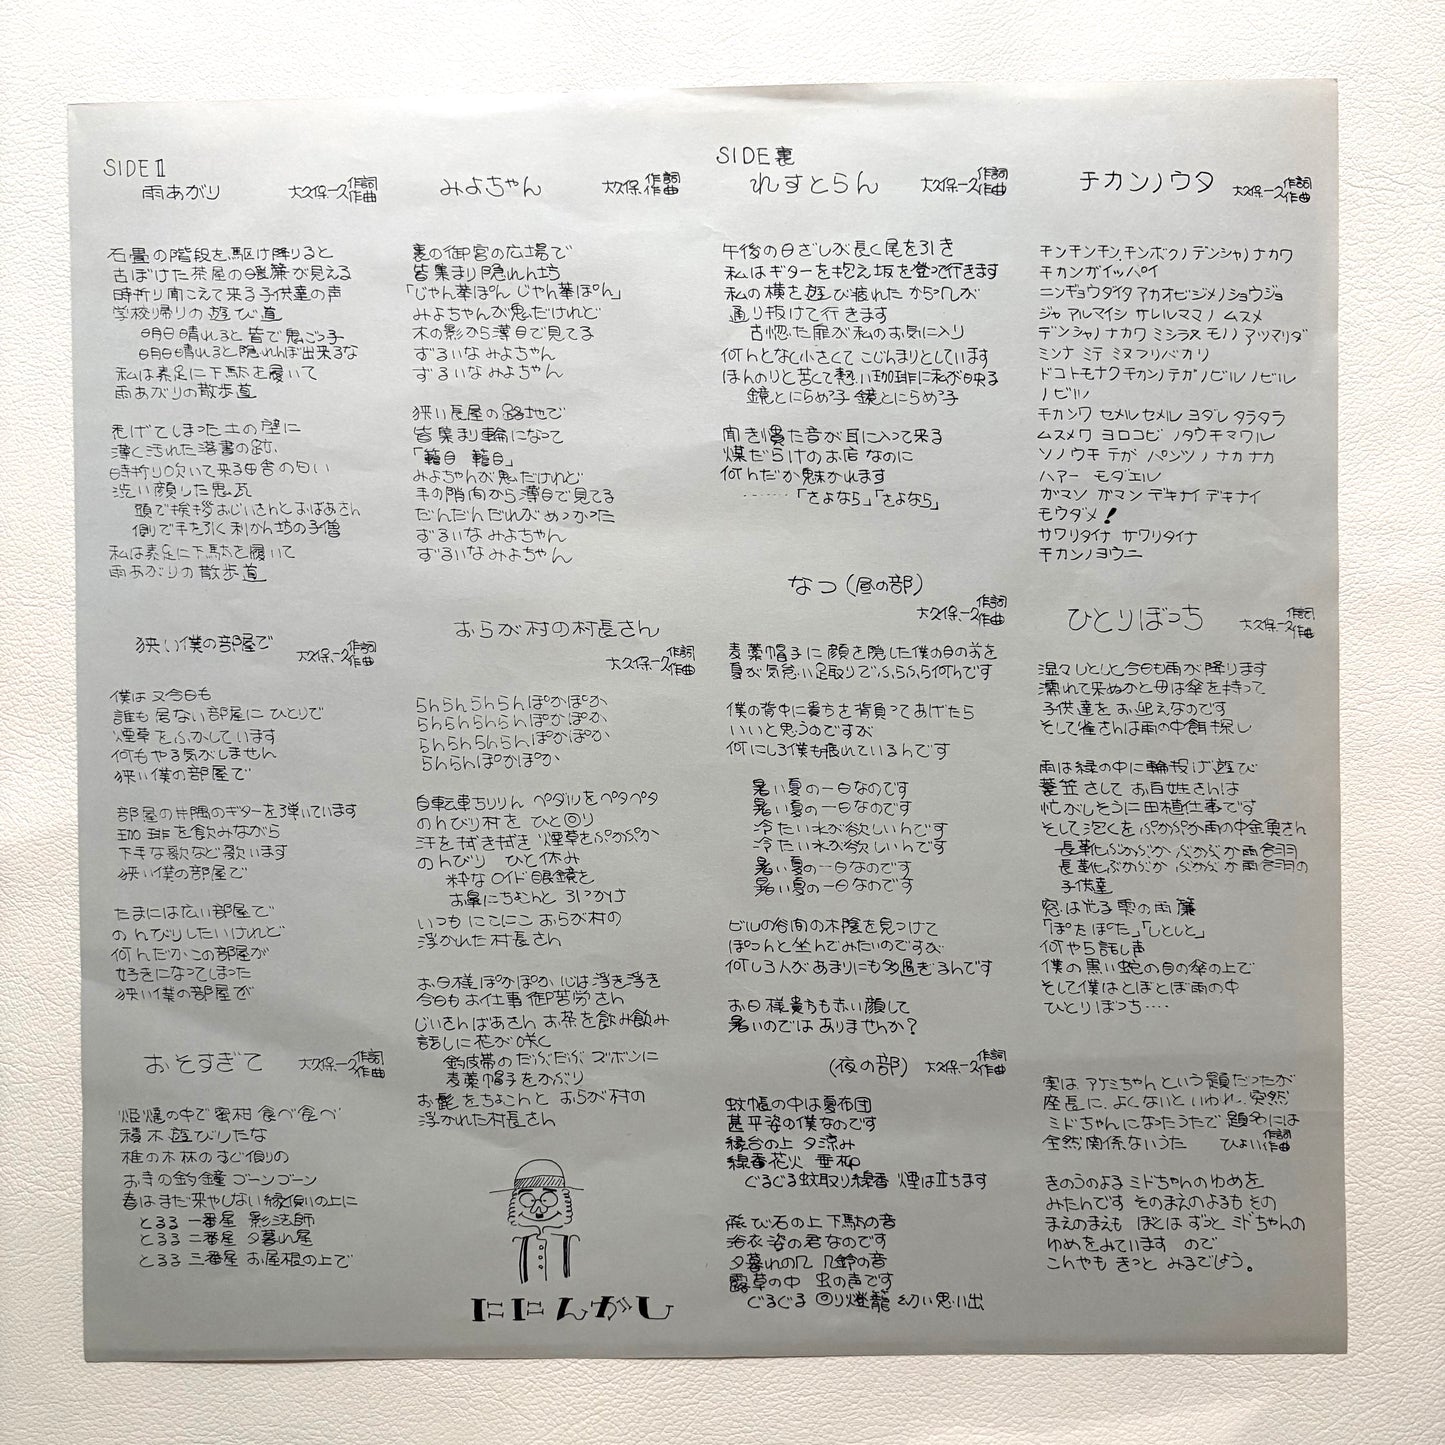 SIDE 1
雨あがり
大久保一久 作詞 作曲
石畳の階段を駆け降りると
古ぼけた茶屋の暖簾が見える
時折り聞こえて来る子供達の声
学校帰りの遊び道
明日晴れると皆で鬼ごっ子
明日晴れると隠れんぼ出来るな
私は素足に下駄を履いて
雨あがりの散歩道
禿げてしまった土の壁に
薄く汚れた落書の跡、
時折り吹いて来る田舎の匂い
渋い顔した鬼瓦
頭で挨拶おじいさんとおばあさん
側で手を引く利かん坊の子僧
私は素足に下駄を履いて
雨あがりの散歩道
狭い僕の部屋で
大久保一久 作詞 作曲
僕は又今日も
誰も居ない部屋にひとりで
煙草をふかしています
何もやる気がしません
狭い僕の部屋で
部屋の片隅のギターを弾いています
珈琲を飲みながら
下手な歌など歌います
狭い僕の部屋で
たまには広い部屋で
のんびりしたいけれど
何んだかこの部屋が
好きになってしまった
狭い僕の部屋が
おそすぎて
大久保一久 作詞 作曲
炬燵の中で蜜柑食べ食べ
積木遊びりたな
椎の木林のすじ側の
お寺の釣鐘 ゴーンゴーン
春はまだ来やしない縁側の上に
とるる 一番星 影法師
とるる 二番星 夕暮れ星
とるる 三番星 お屋根の上で
みよちゃん
大久保 作詞 作曲
裏の御宮の広場で
皆集まり隠れん坊
「じゃん拳ぽん じゃん拳ぽん」
みよちゃんが鬼だけれど
木の影から薄目で見てる
ずるいな みよちゃん
ずるいな みよちゃん
狭い長屋の路地で
皆集まり輪になって
「籠目 籠目」
みよちゃんが鬼だけれど
手の隙間から薄目で見てる
だんだんだれがめっかった
ずるいな みよちゃん
ずるいな みよちゃん
おらが村の村長さん
大久保一久 作詞 作曲
らんらんらんらんぽかぽか
らんらんらんらんぽかぽか
らんらんらんらんぽかぽか
らんらんぽかぽか
自転車ちりりん ペダルをペタペタ
のんびり村を ひと回り
汗を拭き拭き 煙草をぷかぷか
のんびり ひと休み
粋なロイド眼鏡を
お鼻にちょんと 引っかけ
いつもにこにこ おらが村の
浮かれた村長さん
お日様ぽかぽか 心は浮き浮き
今日もお仕事御苦労さん
じいさんばあさん お茶を飲み飲み
話しに花が咲く
釣皮帯のだぶだぶ ズボンに
麦藁帽子をかぶり
お髭をちょこんと おらが村の
浮かれた村長さん
ににんがし
SIDE 裏
れすとらん
大久保一久 作詞 作曲
午後の日ざしが長く尾を引き
私はギターを抱え坂を登って行きます
私の横を遊び疲れた からっ風が
通り抜けて行きます
古惚た扉が私のお気に入り
何んとなく小さくて こじんまりとしています
ほんのりと苦くて熱い珈琲に私が映る
鏡とにらめっ子 鏡とにらめっ子
聞き慣た音が耳に入って来る
煤だらけのお店 なのに
何んだか魅かれます
‥‥‥「さよなら」「さよなら」
なつ (昼の部)
大久保一久 作詞 作曲
麦藁帽子に顔を隠した僕の目の前を
夏が気怠い足取りでふらふら何んです
僕の背中に貴方を背負ってあげたら
いいと思うのですが
何にしろ僕も疲れているんです
暑い夏の一日なのです
暑い夏の一日なのです
冷たい水が欲しいんです
冷たい水が欲しいんです
暑い夏の一日なのです
暑い夏の一日なのです
ビルの谷間の木陰を見つけて
ぽつんと坐んでみたいのですが
何しろ人があまりにも多過ぎるんです
お日様貴方も赤い顔して
暑いのではありませんか？
(夜の部)
大久保一久 作詞 作曲
蚊帳の中は夏布団
甚平姿の僕なのです
縁台の上 夕涼み
線香花火 垂柳
ぐるぐる蚊取り線香 煙は立ちます
飛び石の上 下駄の音
浴衣姿の君なのです
夕暮れの風 風鈴の音
露草の中 虫の声です
ぐるぐる 回り燈籠 幼い思い出
チカンノウタ
大久保一久 作詞 作曲
チンチンチン,チンボクノ デンシャノ ナカワ
チカンガイッパイ
ニンギョウダイタ アカオビジメノ ショウジョ
ジャ アルマイシ サレルママノ ムスメ
デンシャノ ナカワ ミシラヌ モノノ アツマリダ
ミンナ ミテ ミヌフリバカリ
ドコトモナクチカンノテガノビル ノビル
ノビル
チカンワ セメル セメル ヨダレ タラタラ
ムスメワ ヨロコビ ノタウチマワル
ソノウチ テガ パンツノ ナカナカ
ハアー モダエル
ガマン ガマン デキナイ デキナイ
モウダメ！
サワリタイナ サワリタイナ
チカンノヨウニ
ひとりぼっち
大久保一久 作詞 作曲
湿々しとしと今日も雨が降ります
濡れて来ぬかと母は傘を持って
子供達をお迎えなのです
そして雀さんは雨の中餌探し
雨は緑の中に輪投げ遊び
蓑笠さして お百姓さんは
忙がしそうに田植仕事です
そして泡くを ぷかぷか雨の中金魚さん
長靴ぶかぶか ぶかぶか雨合羽
長靴ぶかぶか ぶかぶか雨合羽の
子供達
窓は光る雫の雨簾
「ぽたぽた」「しとしと」
何やら話し声
僕の黒い蛇の目の傘の上で
そして僕はとぼとぼ雨の中
ひとりぼっち‥‥
実は、アケミちゃんという題だったが
座長に、よくないといわれ、突然
ミドちゃんになったうたで 題名には
全然関係ないうた
ひょい 作詞 作曲
きのうのよる ミドちゃんのゆめを
みたんです そのまえのよるも その
まえのまえも ほとは ずっと ミドちゃんの
ゆめをみています ので
こんやも きっと みるでしょう。